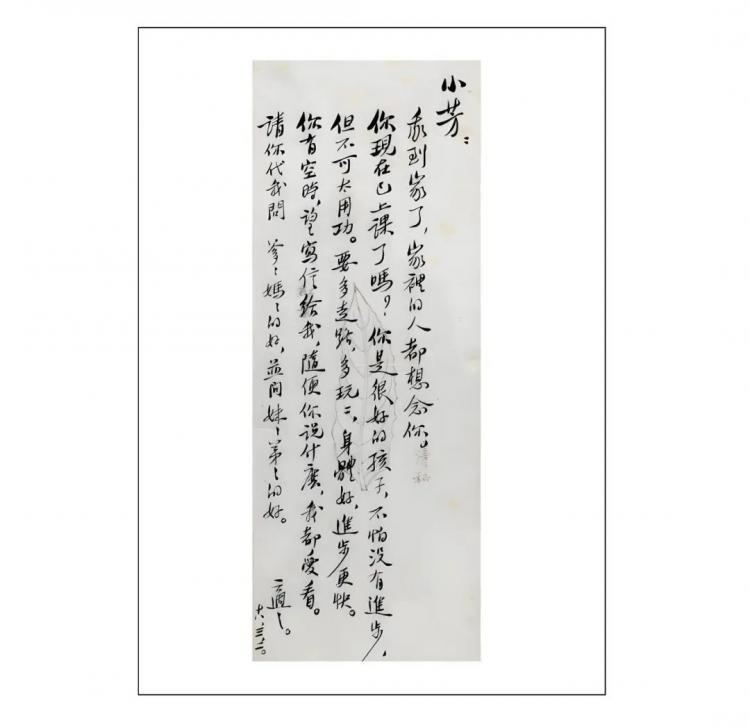 小芳：
我到家了，家裡的人都想念你。
你現在已上課了嗎？你是很好的孩子，不怕没有進步，
但不可太用功。要多走路，多玩〻，身體好，進步更快。
你有空時，望寫信給我，隨便你说什麽，我都愛看。
請你代我問 爹〻媽〻的好，並问妹〻弟〻的好。
適